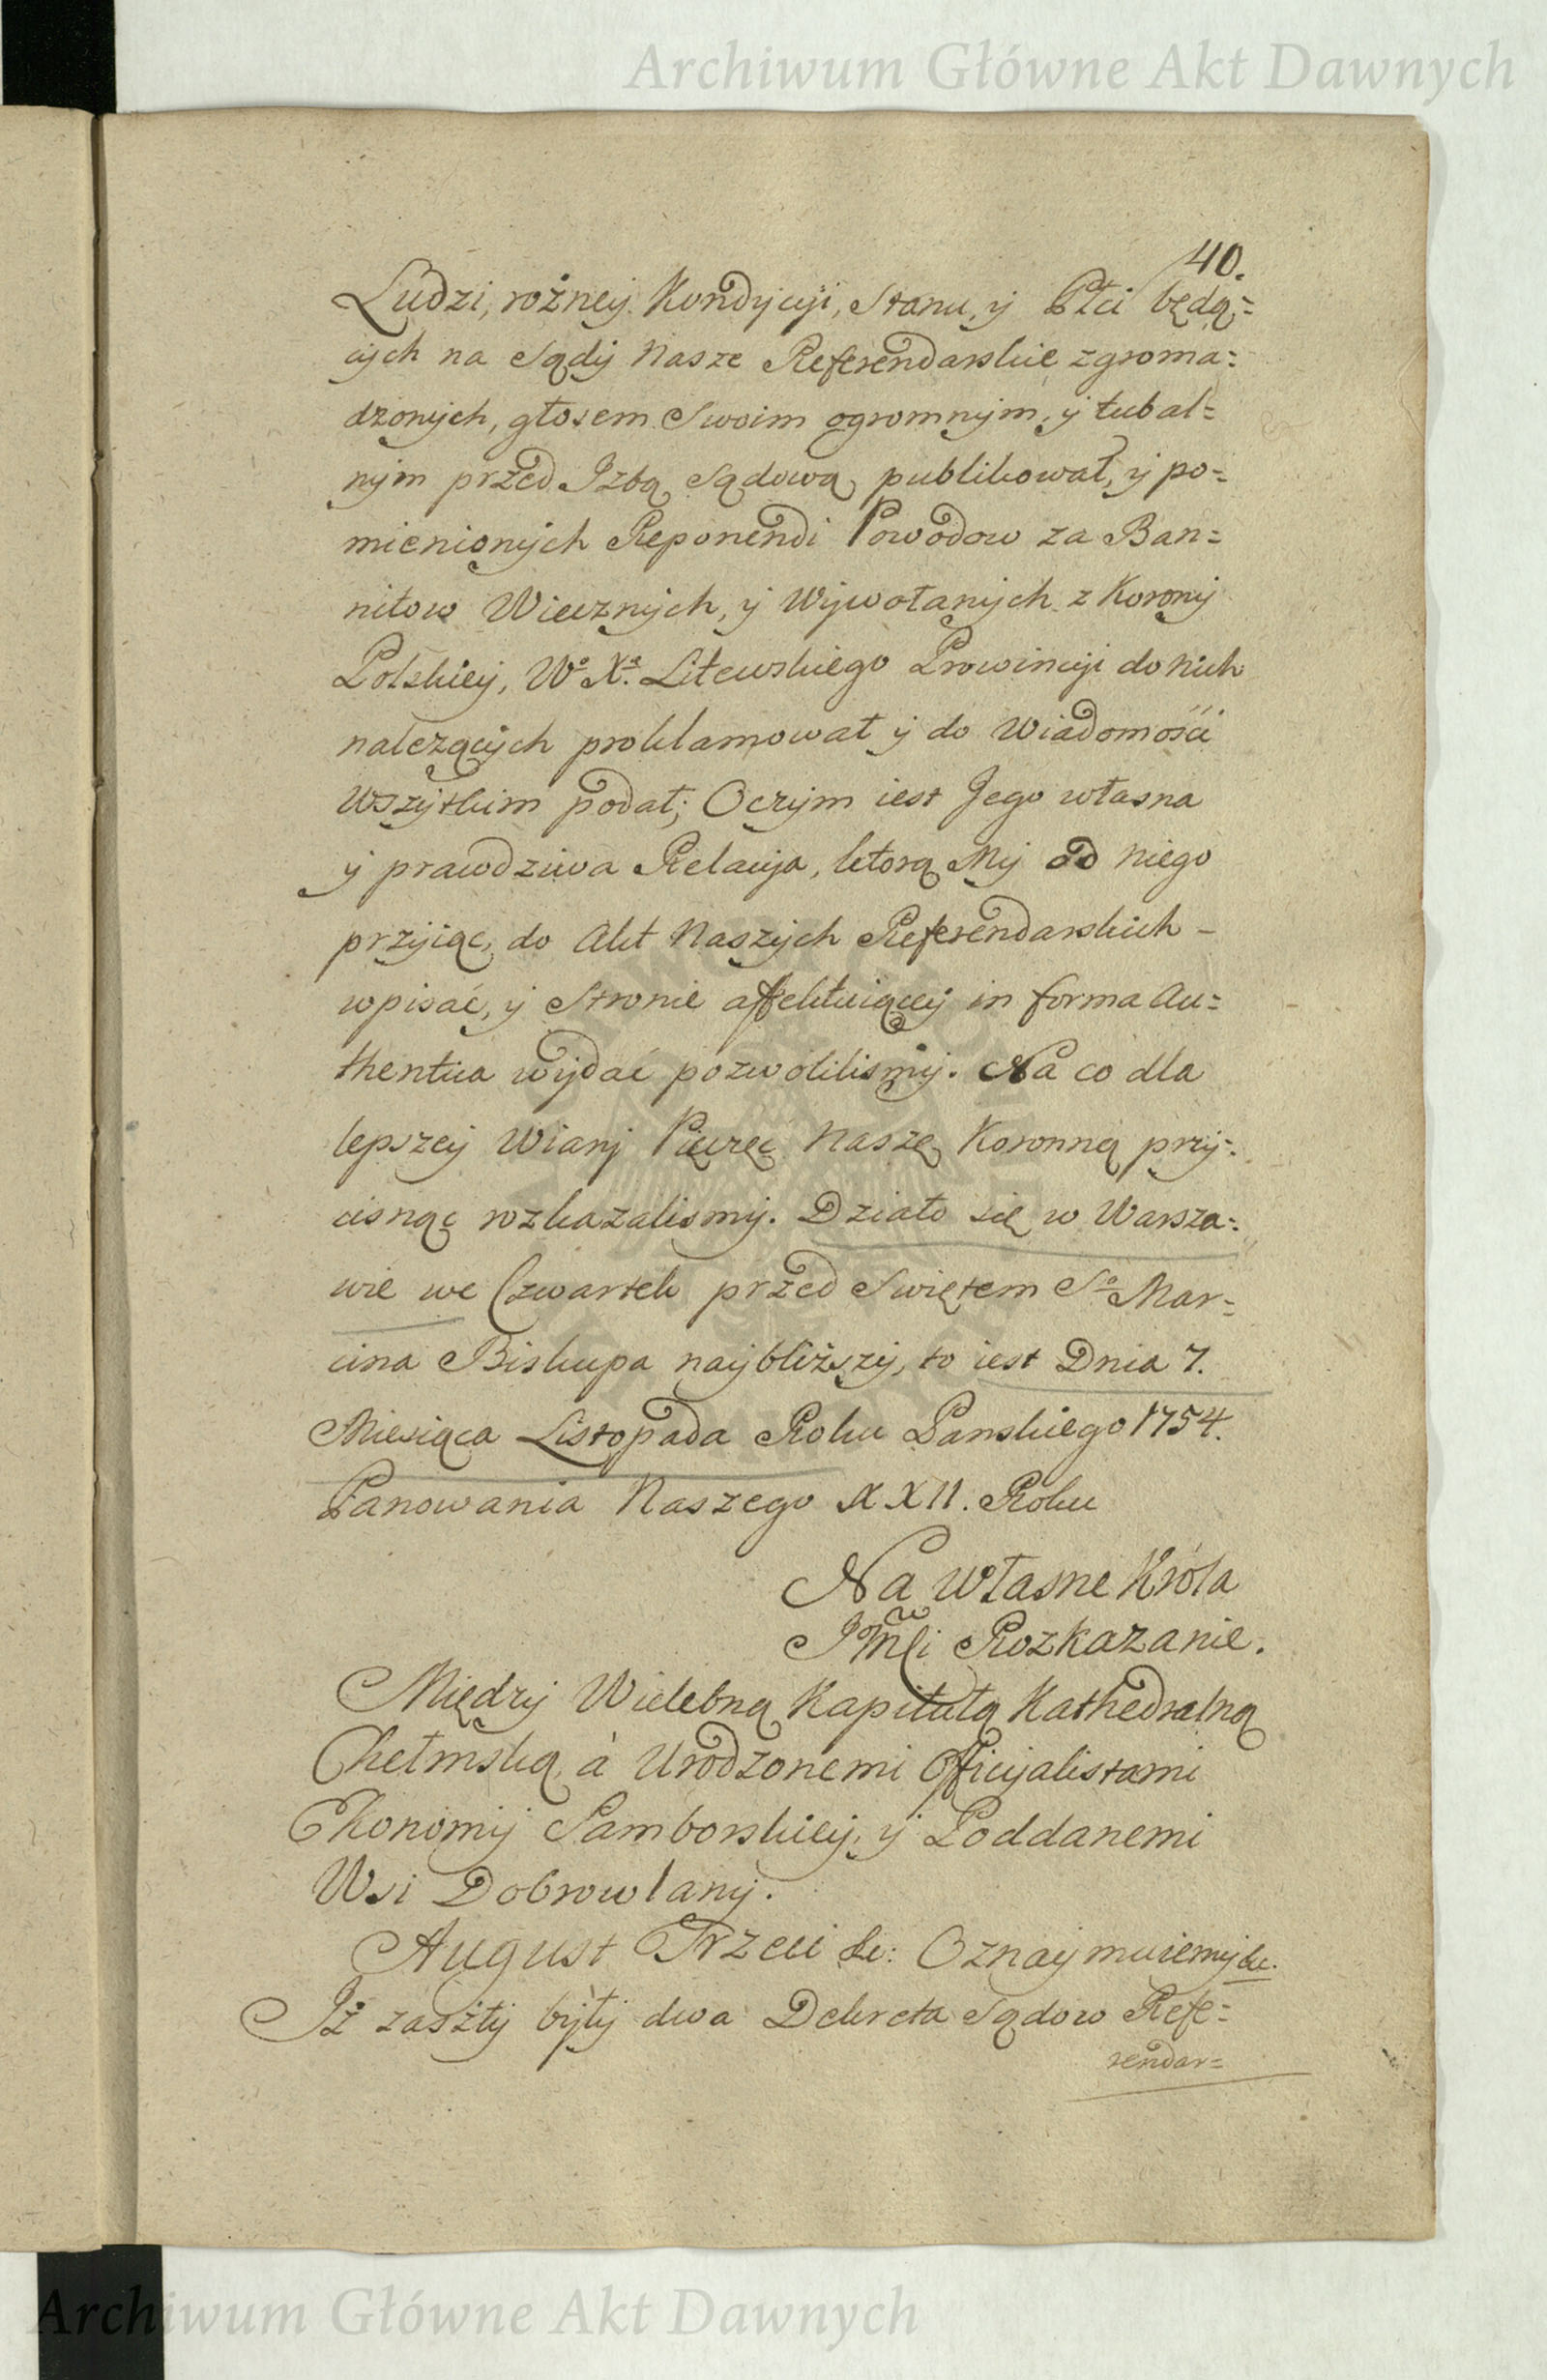 Archiwum Główne Akt Dawnych
40.
Ludzi, rożney Kondycyi, Stanu, y Płci będą=
cych na Sądy Nasze Referendarskie zgroma=
dzonych, głosem Swoim ogromnym, y tubal=
nym przed Izbą Sądową publikował, y po=
mienionych Reponendi Powodow za Ban=
nitow Wiecznych, y Wywołanych z Korony
Polskiey, Wo Xa. Litewskiego Prowincyi do nich
nalezących proklamował y do Wiadomości
Wszytkim podał; Oczym iest Jego własna
y prawdziwa Relacya, ktorą My od niego
przyiąc, do Akt Naszych Referendarskich –
wpisać, y Stronie affektuiącey in forma Au=
thentica wydać pozwoliliśmy. Na co dla
lepszey Wiary Pięczęć Naszę Koronną przy=
cisnąc rozkazalismy. Działo się w Warsza=
wie we Czwartek przed Swiętem So Mar=
cina Biskupa naybliższy, to iest Dnia 7.
Miesiąca Listopada Roku Panskiego 1754.
Panowania Naszego XXII. Roku
Na Własne Króla
JMci Rozkazanie.
Między Wielebną Kapitułą Kathedralną
Chełmską, à Urodzonemi Officyalistami
Ekonomij Samborskiey, y Poddanemi
Wsi Dobrowlany.
August Trzeci &c: Oznaymuiemy &c.
Iż zaszły były dwa Dekreta Sądow Refe=
rendar=
Archiwum Główne Akt Dawnych